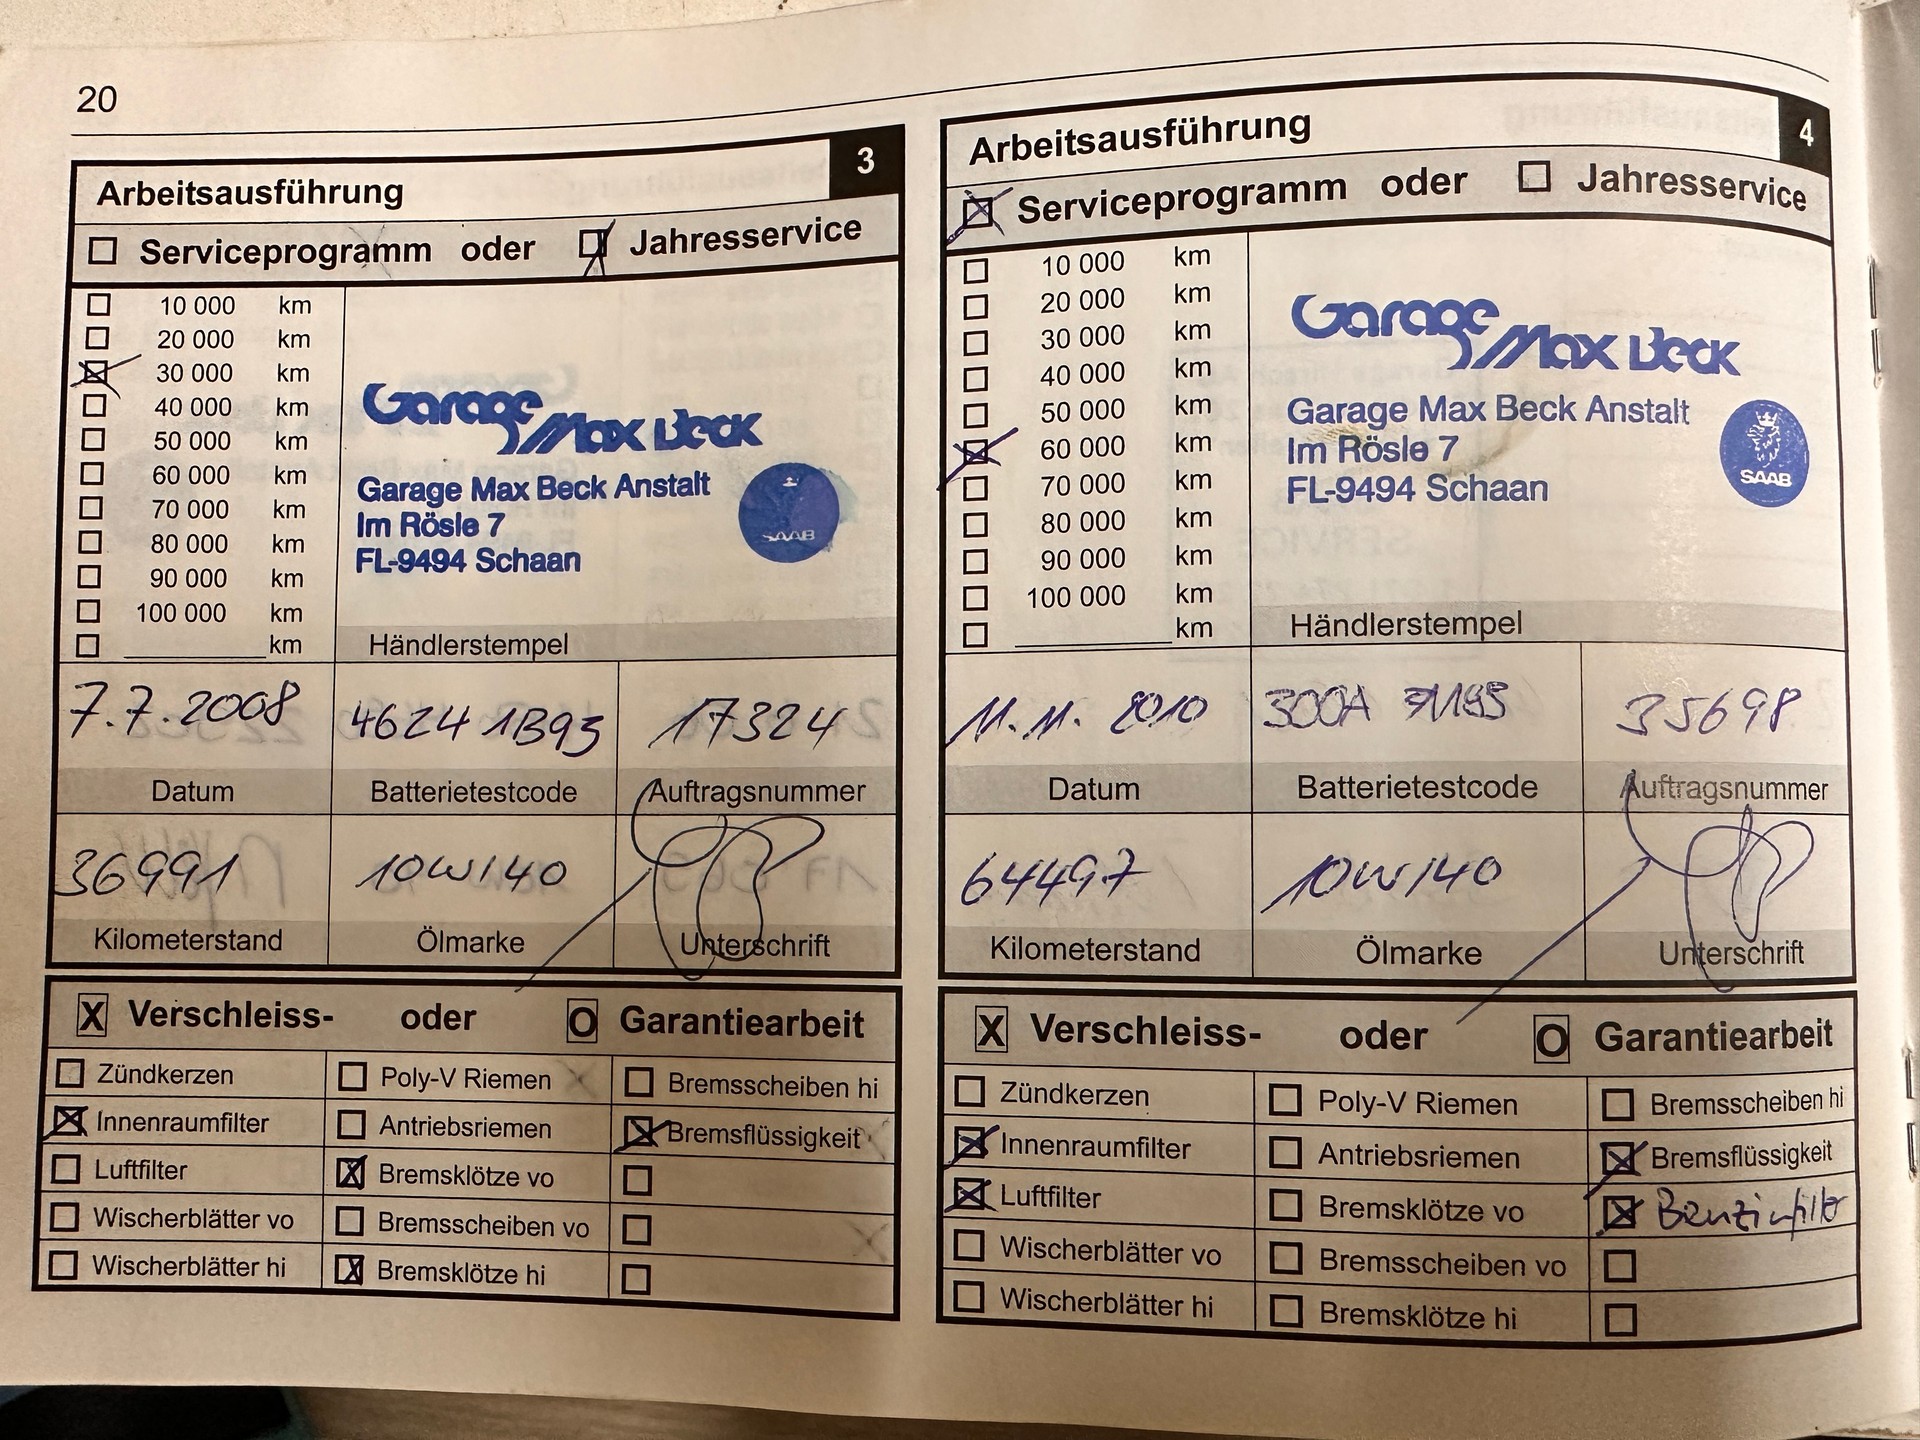 20
3
Arbeitsausführung
Serviceprogramm oder Jahresservice
10 000 km
20 000 km
30 000 km
40 000 km
50 000 km
60 000 km
70 000 km
80 000 km
90 000 km
100 000 km
km
Garage Max Beck
Garage Max Beck Anstalt
Im Rösle 7
FL-9494 Schaan
SAAB
Händlerstempel
7.7.2008 4624 1B93 17324
Datum Batterietestcode Auftragsnummer
36991 10W/40
Kilometerstand Ölmarke Unterschrift
X Verschleiss- oder O Garantiearbeit
Zündkerzen Poly-V Riemen Bremsscheiben hi
Innenraumfilter Antriebsriemen Bremsflüssigkeit
Luftfilter Bremsklötze vo
Wischerblätter vo Bremsscheiben vo
Wischerblätter hi Bremsklötze hi
4
Arbeitsausführung
Serviceprogramm oder Jahresservice
10 000 km
20 000 km
30 000 km
40 000 km
50 000 km
60 000 km
70 000 km
80 000 km
90 000 km
100 000 km
km
Garage Max Beck
Garage Max Beck Anstalt
Im Rösle 7
FL-9494 Schaan
SAAB
Händlerstempel
11.11. 2010 300A 35698
Datum Batterietestcode Auftragsnummer
64497 10W/40
Kilometerstand Ölmarke Unterschrift
X Verschleiss- oder O Garantiearbeit
Zündkerzen Poly-V Riemen Bremsscheiben hi
Innenraumfilter Antriebsriemen Bremsflüssigkeit
Luftfilter Bremsklötze vo Benzinfilter
Wischerblätter vo Bremsscheiben vo
Wischerblätter hi Bremsklötze hi